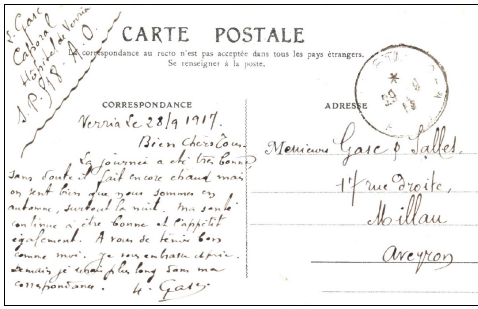 L. Gasc
Caporal
Hôpital de Verria
S.P. 518. A.O.
CARTE POSTALE
La correspondance au recto n'est pas acceptée dans tous les pays étrangers.
Se renseigner à la poste.
CORRESPONDANCE
ADRESSE
Verria Le 28/9 1917.
Bien Chers Tous
La journée a été très bonne
sans doute il fait encore chaud mais
on sent bien que nous sommes en
automne, surtout la nuit. Ma santé
continue à être bonne et l'appétit
également. A vous de
comme moi. Je vous embrasse
Demain je serai plus long dans ma
correspondance. Gasc
Messieurs Gasc & Salles.
17 rue Droite,
Millau
Aveyron